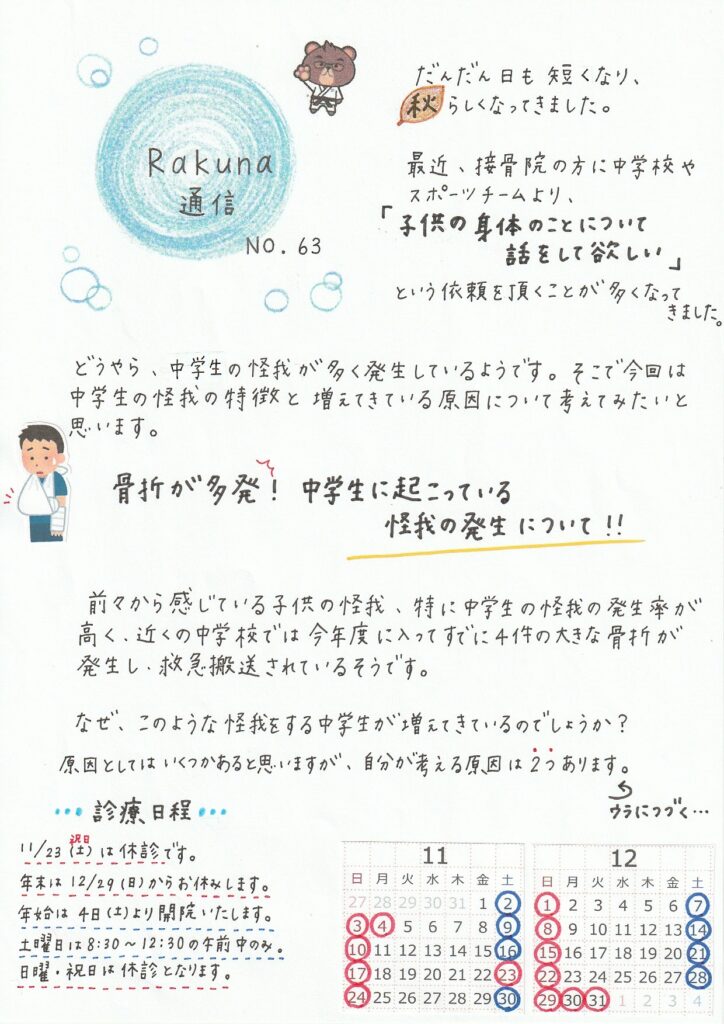 Rakuna
通信
NO. 63
だんだん日も短くなり、
秋らしくなってきました。
最近、接骨院の方に中学校や
スポーツチームより、
「子供の身体のことについて
話をして欲しい」
という依頼を頂くことが多くなって
きました。
どうやら、中学生の怪我が多く発生しているようです。そこで今回は
中学生の怪我の特徴と増えてきている原因について考えてみたいと
思います。
骨折が多発！中学生に起こっている
怪我の発生について!!
前々から感じている子供の怪我、特に中学生の怪我の発生率が
高く、近くの中学校では今年度に入ってすでに4件の大きな骨折が
発生し、救急搬送されているそうです。
なぜ、このような怪我をする中学生が増えてきているのでしょうか？
原因としてはいくつかあると思いますが、自分が考える原因は2つあります。
ウラにつづく…
…診療日程…
祝日
11/23(土)は休診です。
年末は12/29(日)からお休みします。
年始は4日(土)より開院いたします。
土曜日は8:30～12:30の午前中のみ。
日曜・祝日は休診となります。
11
日 月 火 水 木 金 土
27 28 29 30 31 1 2
3 4 5 6 7 8 9
10 11 12 13 14 15 16
17 18 19 20 21 22 23
24 25 26 27 28 29 30
12
日 月 火 水 木 金 土
1 2 3 4 5 6 7
8 9 10 11 12 13 14
15 16 17 18 19 20 21
22 23 24 25 26 27 28
29 30 31 1 2 3 4